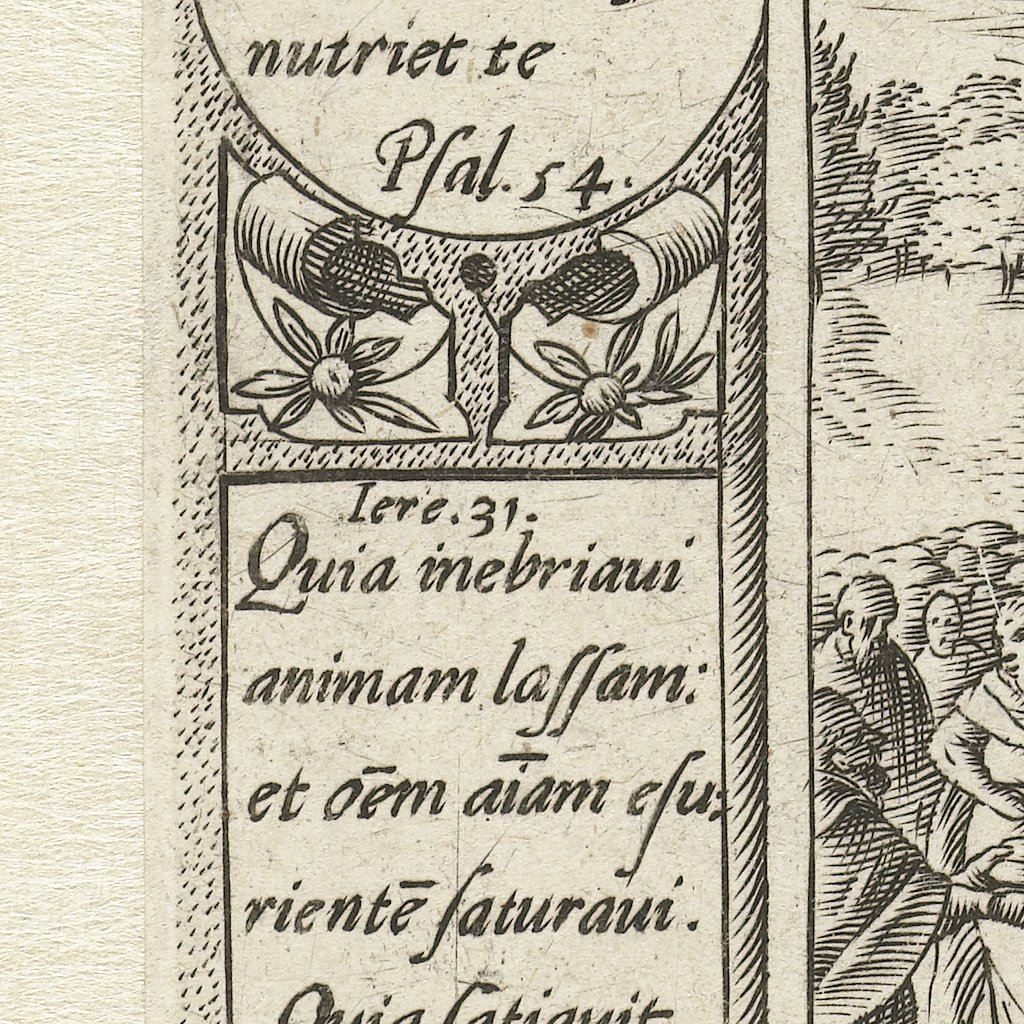 nutriet te
Pſal. 54.
Iere. 31.
Quia inebriaui
animam laſſam:
et oēm aīam eſu-
rientē ſaturaui.
Quia ſatiauit